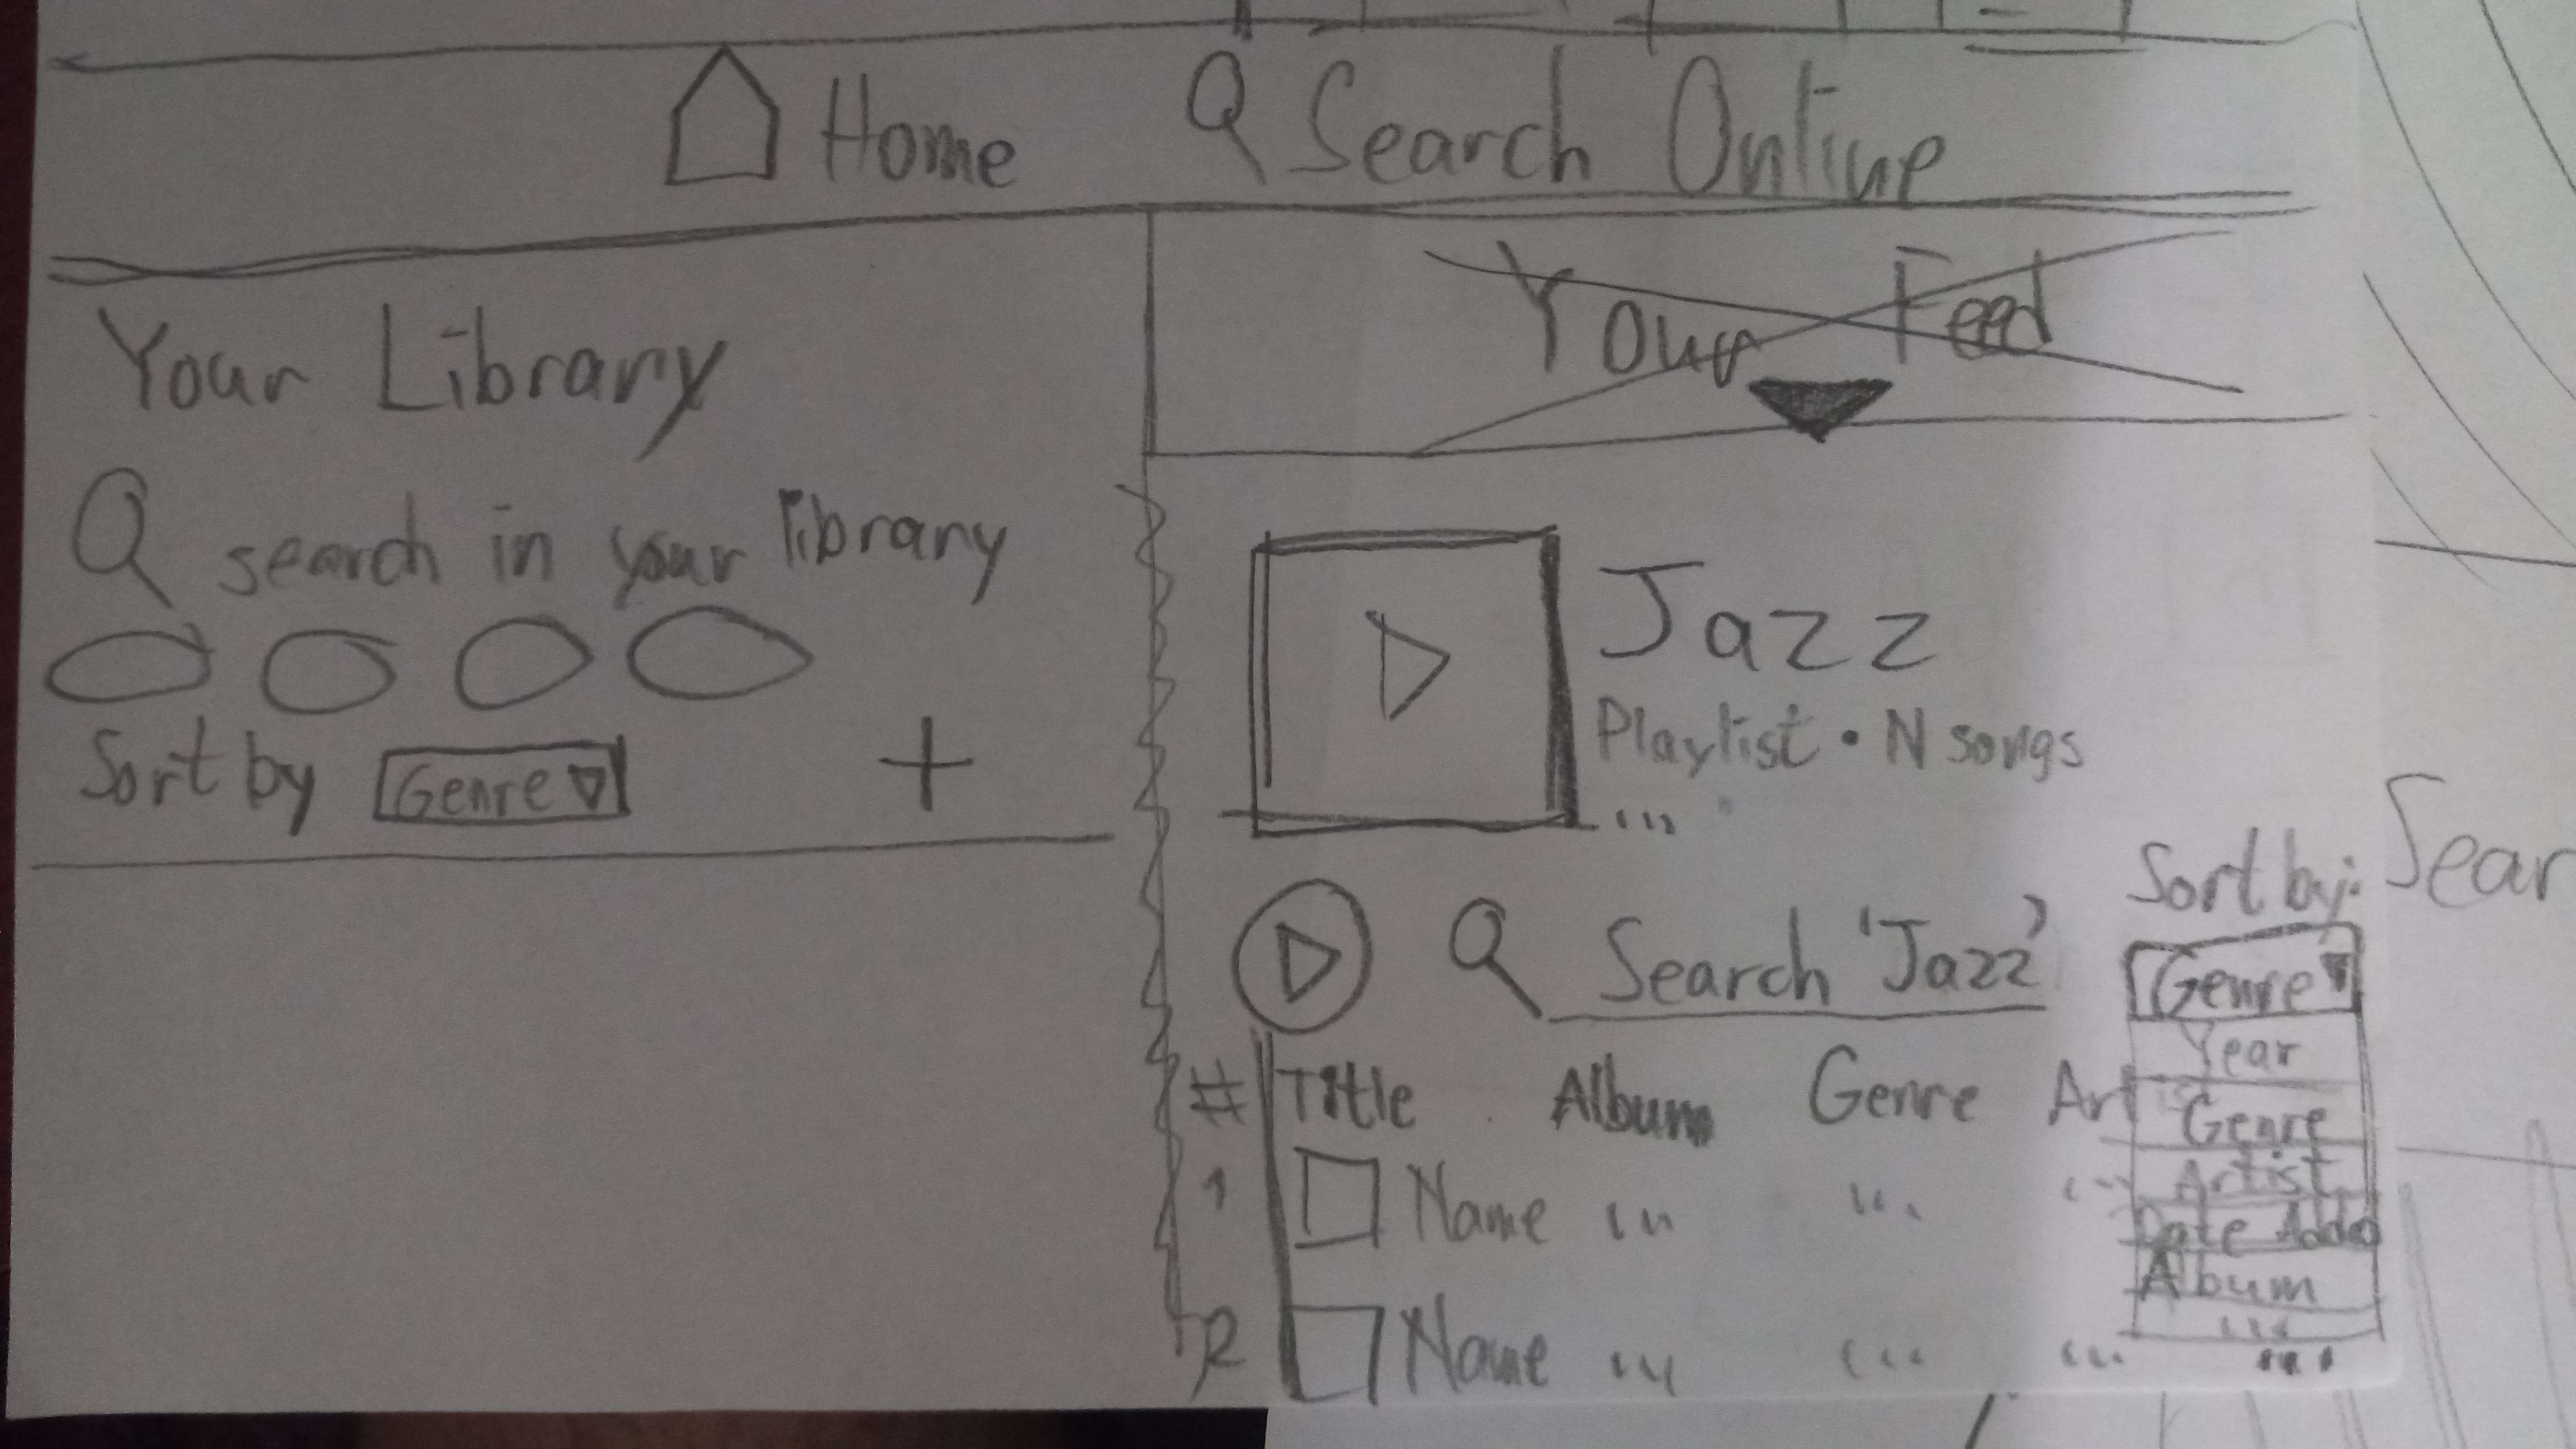 Home Search Online
Your Library
search in your library
Sort by Genre
+
Your Feed
Jazz
Playlist • N songs
...
Search 'Jazz'
Sort by:
Genre
Year
Genre
Artist
Date Added
Album
...
# Title Album Genre Art
1 Name ... ... ...
2 Name ... ... ... ...
Sear